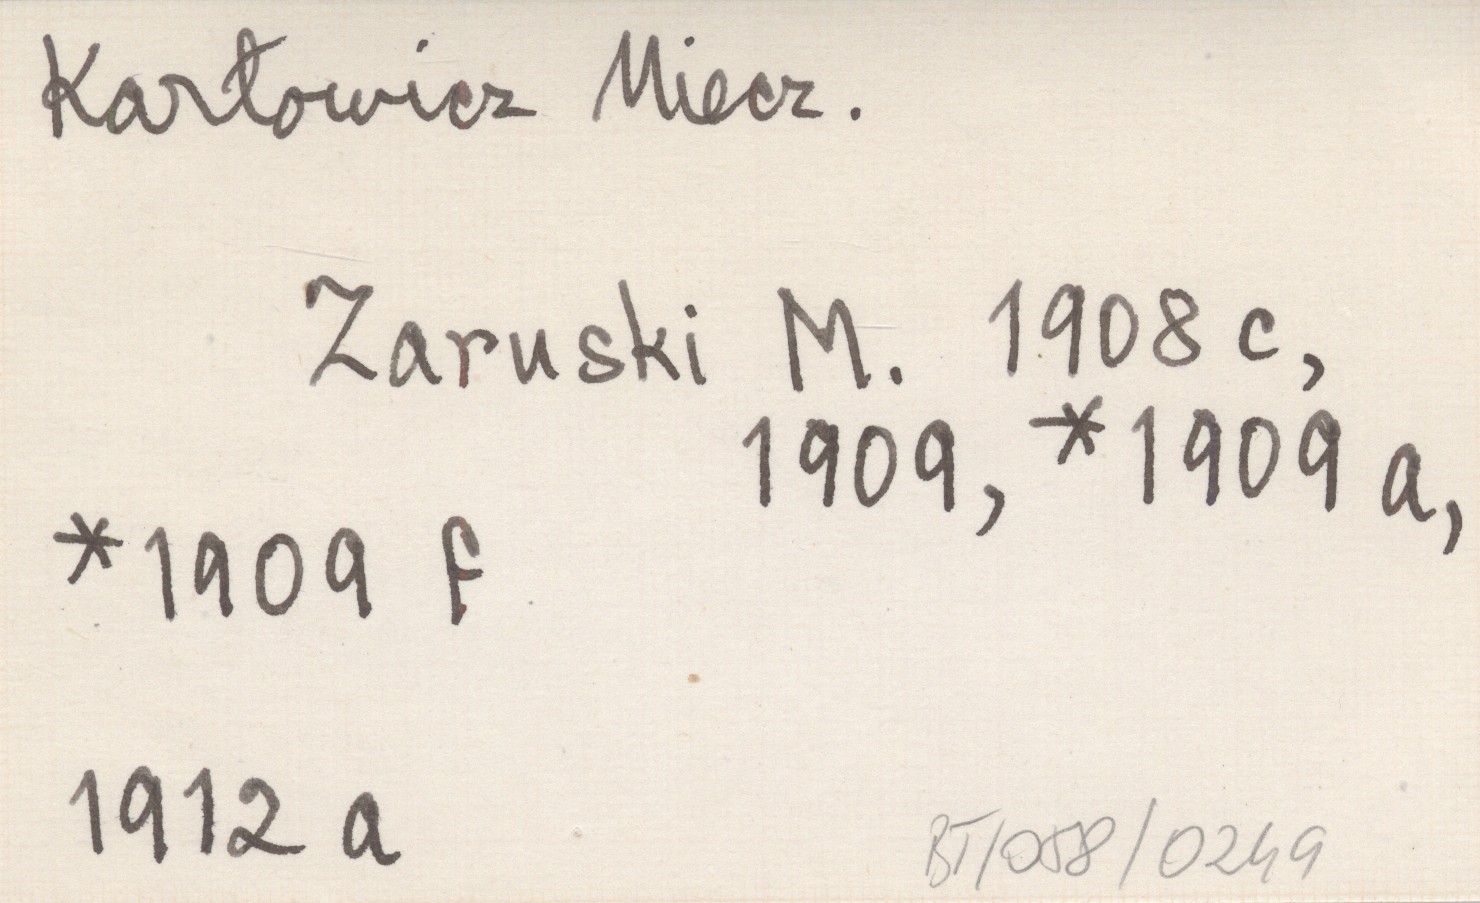 Karłowicz Miecz.
Zaruski M. 1908 c,
1909, *1909 a,
*1909 f
1912 a
BT/058/0249